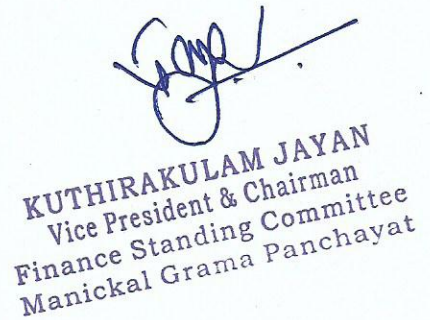 KUTHIRAKULAM JAYAN
Vice President & Chairman
Finance Standing Committee
Manickal Grama Panchayat